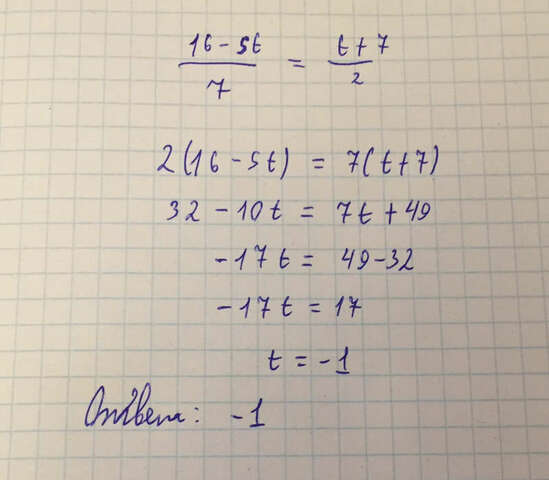 (16-5t)/7 = (t+7)/2
2(16-5t) = 7(t+7)
32-10t = 7t+49
-17t = 49-32
-17t = 17
t = -1
Ответ: -1